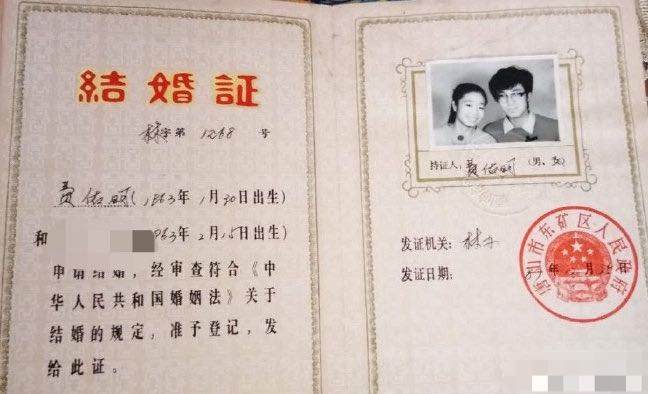 結婚証
林字第 1268 号
黄佐顺(1963年1月30日出生)
和 963年2月15日出生)
申请结婚，经审查符合《中
华人民共和国婚姻法》关于
结婚的规定，准予登记，发
给此证。
持证人：黄佐顺 (男、女)
发证机关：林
发证日期： 年 月 日
唐山市东矿区人民政府